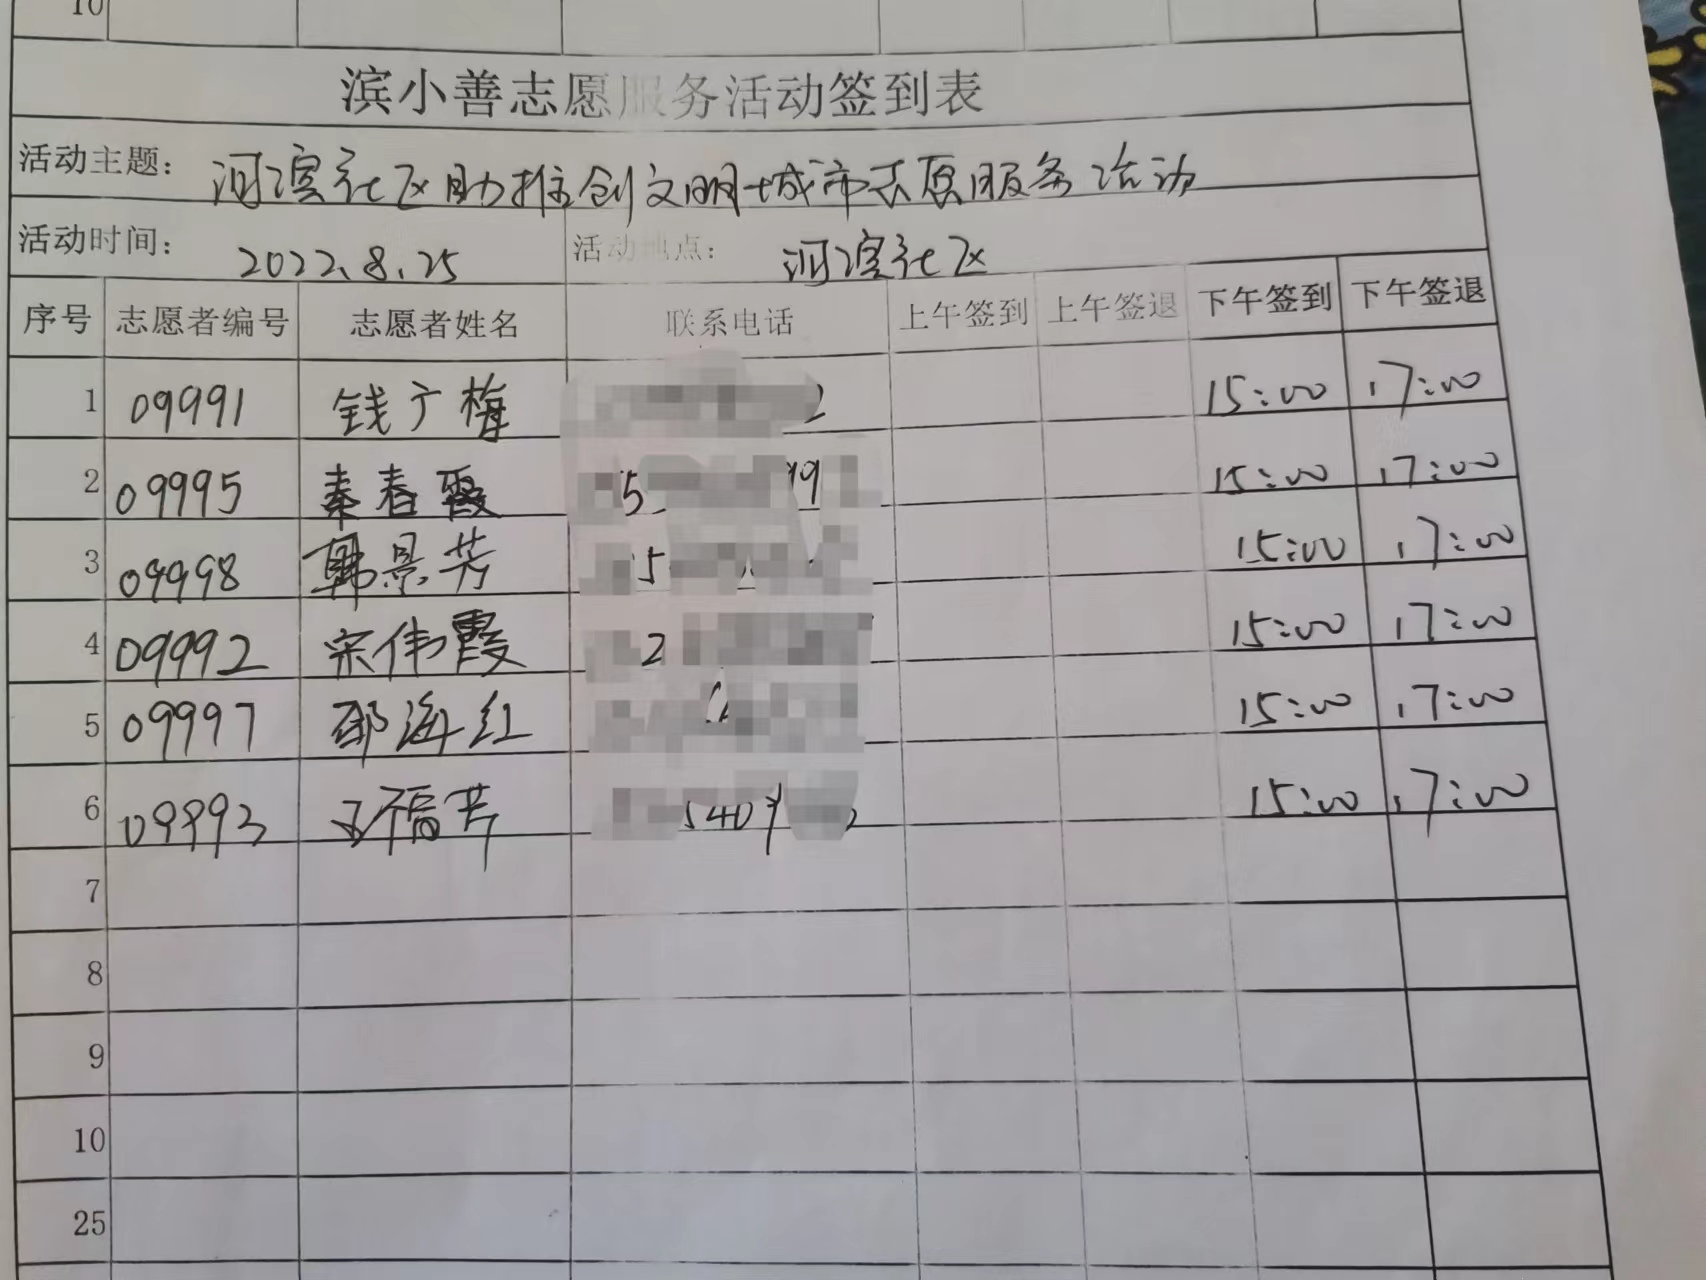 10
滨小善志愿服务活动签到表
活动主题： 河滨社区助推创文明城市志愿服务活动
活动时间： 2022.8.25 活动地点： 河滨社区
序号 志愿者编号 志愿者姓名 联系电话 上午签到 上午签退 下午签到 下午签退
1 09991 钱广梅 2 15:00 17:00
2 09995 秦春霞 5 99 15:00 17:00
3 09998 韩景芳 5 15:00 17:00
4 09992 宋伟霞 2 15:00 17:00
5 09997 邵海红 15:00 17:00
6 09993 王福芹 540 15:00 17:00
7
8
9
10
25